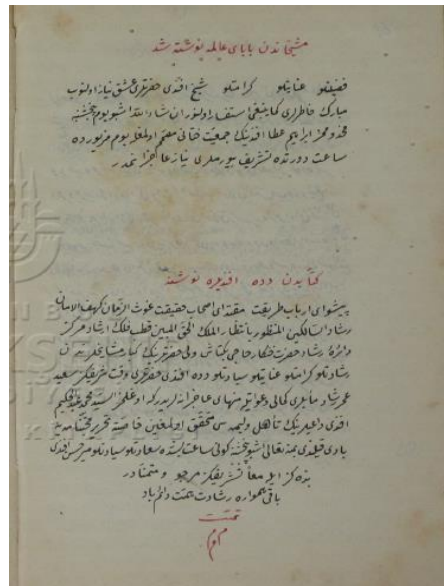 مشیخاندن بابای عالمه نوشته شد
فضیلتلو عنایتلو کرامتلو شیخ افندی حضرتلری عشق نیاز اولنوب
مبارک خاطرلری کماینبغی استفسار اولنور ان شاء الله اشبو یوم پنجشنبه
مخدوممز ابراهیم عطا افندینک جمعیت ختانی مصمم اولمغله یوم مزبورده
ساعت دورتده تشریف بیورملری نیاز عاجزانه‌مدر
کتابدن دده افندیلره نوشته
پیشوای ارباب طریقت مقتدای اصحاب حقیقت غوث الزمان کهف الامان
رشاد السالکین المنظور بانظار الملک الحق المبین قطب فلک ارشاد مرکز
دائرهٔ رشاد حضرت خنکار حاجی بکتاش ولی حضرتلرینک کبار مشایخلرندن
رشادتلو کرامتلو عنایتلو سیادتلو دده افندی حضرتلری وقت شریفکز سعید
عمر رشاد مآبلری دعواتیله منهای عاجزانه لریدرکه السید محمد عبدالحکیم
افندی داعیلرینک تأهل ولیمه سی تحقق اولمغین خاصة تحریر
بادی قیلندی بمنه تعالی اشبو پنجشنبه کونی ساعت سعادتلو سیادتلو افندی
بنده کز ایله معاً تشریفکز مرجو و متمنادر
باقی همواره رشادت بمنت دائم باد
تمت
م م